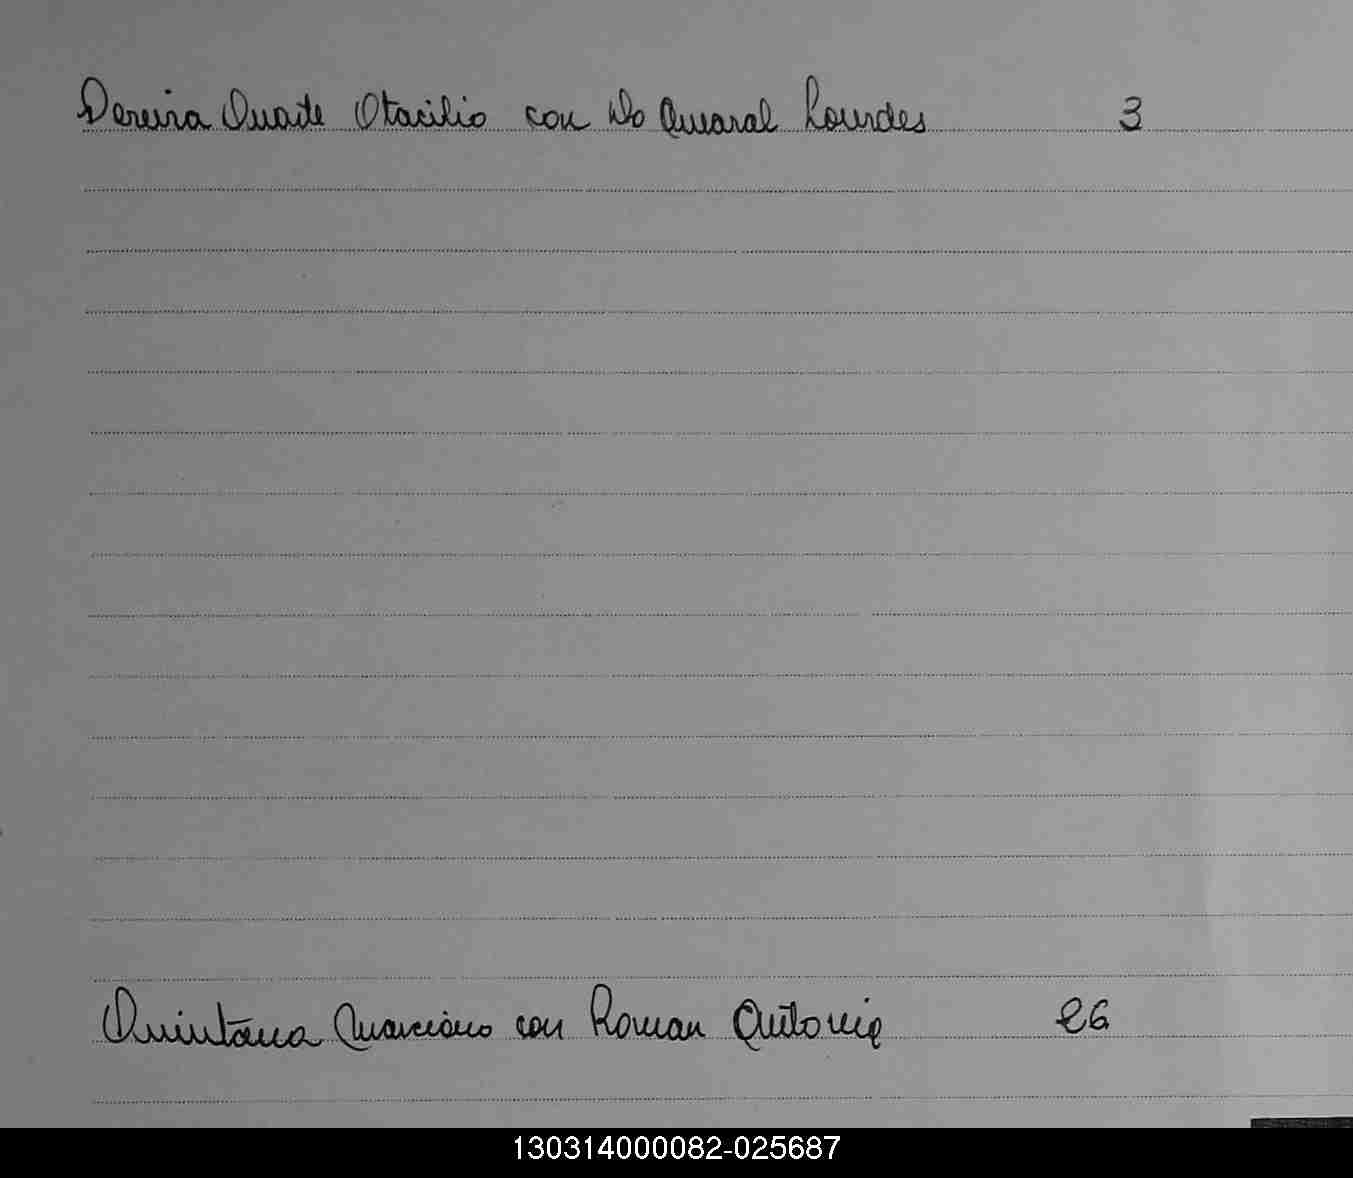 Pereira Duarte Otacilio con Do Amaral Lourdes 3
Quintana Marciano con Roman Antonia 26
130314000082-025687